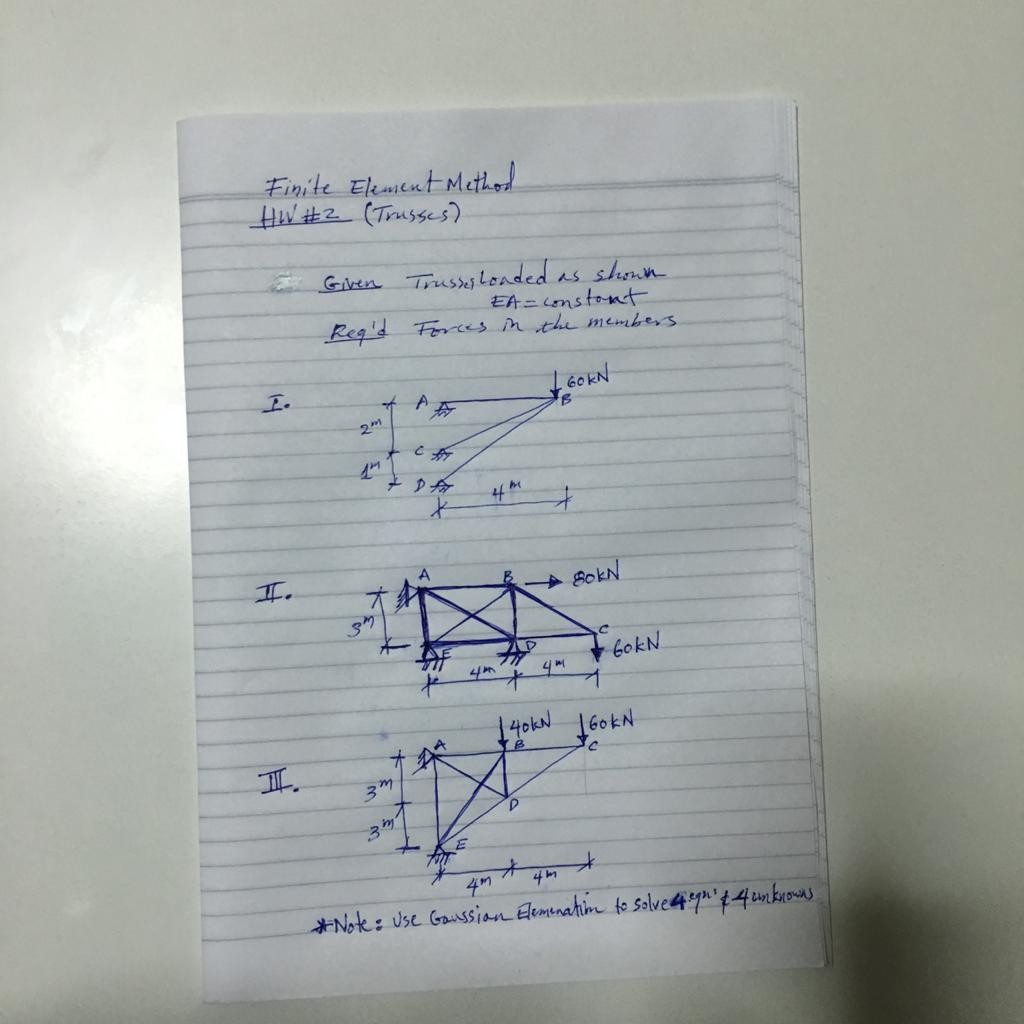 Finite Element Method
HW #2 (Trusses)
Given Trusses Loaded as shown
EA = constant
Req'd Forces in the members
I.
60kN
A
B
2m
C
1m
D
4m
II.
A
B
80kN
3m
C
E
D
60kN
4m
4m
III.
40kN
60kN
A
B
C
3m
D
3m
E
4m
4m
*Note: Use Gaussian Elemenation to solve 4 eqns & 4 unknowns